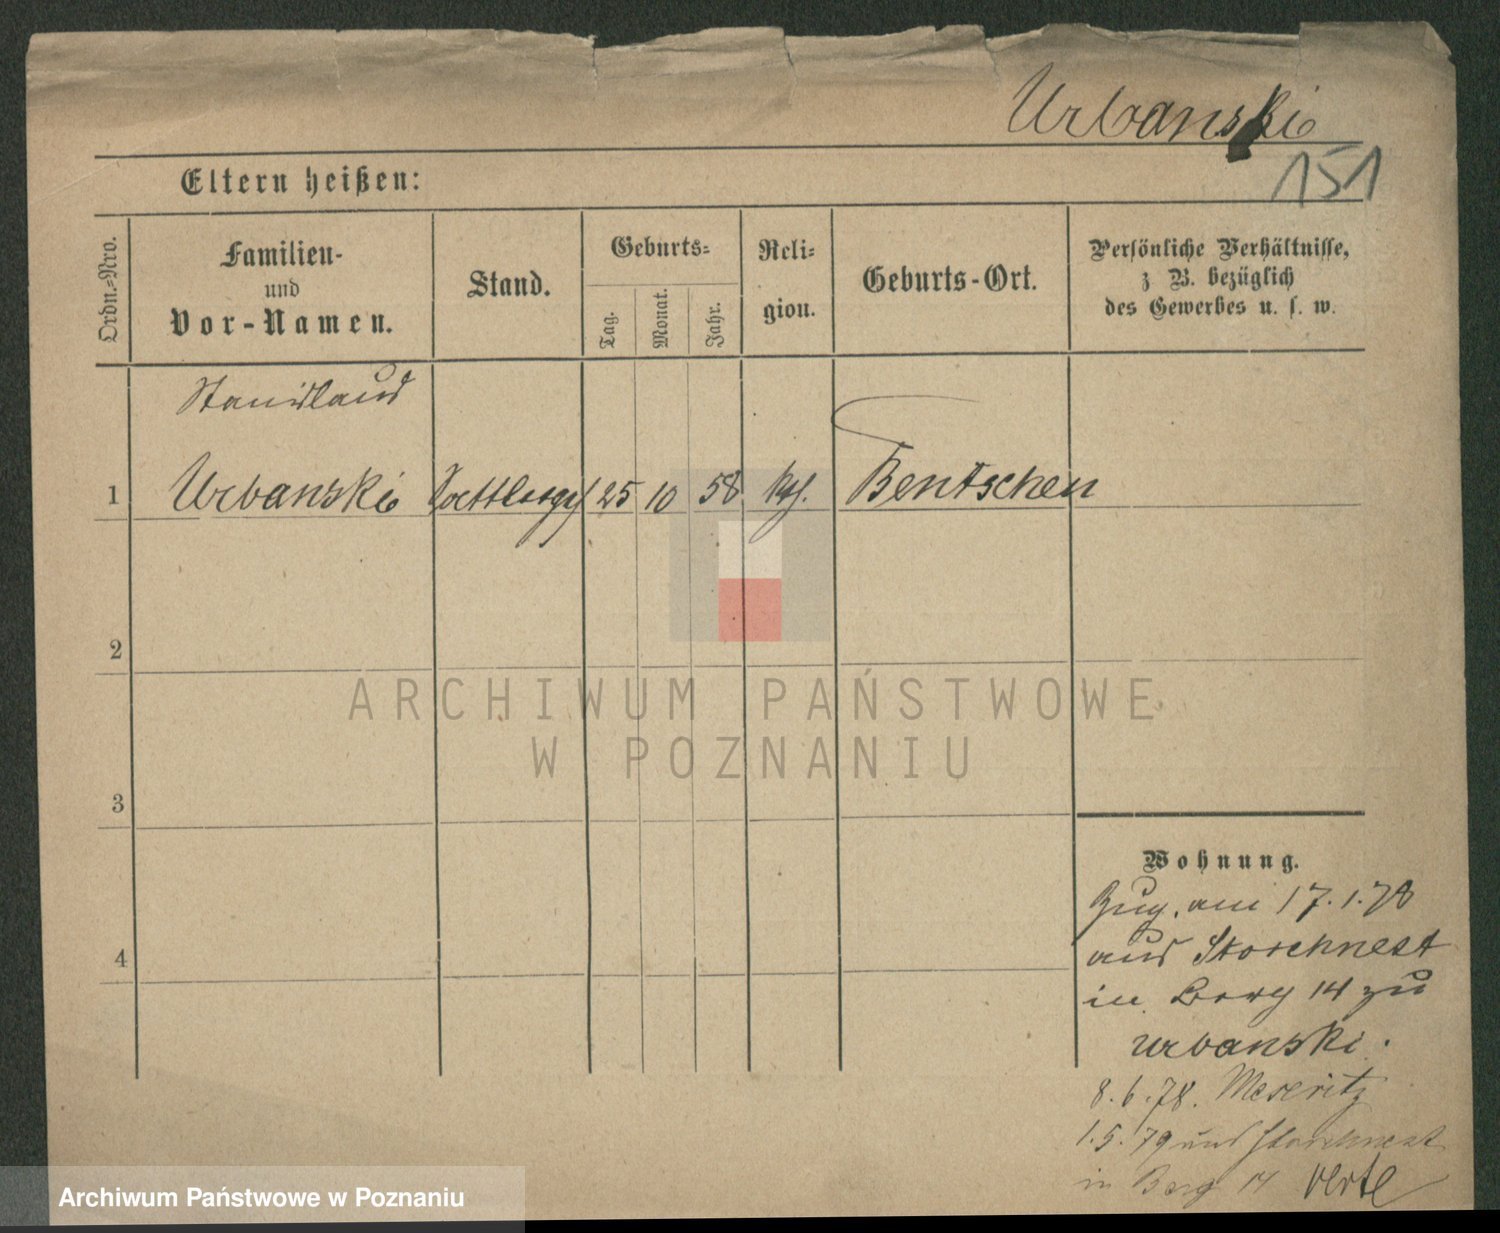 Urbanski
151
Eltern heißen:
Ordn.=Nro.
Familien-
und
Vor-Namen.
Stand.
Geburts=
Tag.
Monat.
Jahr.
Reli=
gion.
Geburts-Ort.
Persönliche Verhältnisse,
z B. bezüglich
des Gewerbes u. s. w.
Stanislaus
1 Urbanski 25 10 58 kth. Bentschen
2
3
4
Wohnung.
Zug. am 17.1.78
aus Storchnest
in Berg 14 zu
Urbanski.
8.6.78. Meseritz
1.5.79 aus Storchnest
in Berg 14 verte
ARCHIWUM PAŃSTWOWE
W POZNANIU
Archiwum Państwowe w Poznaniu